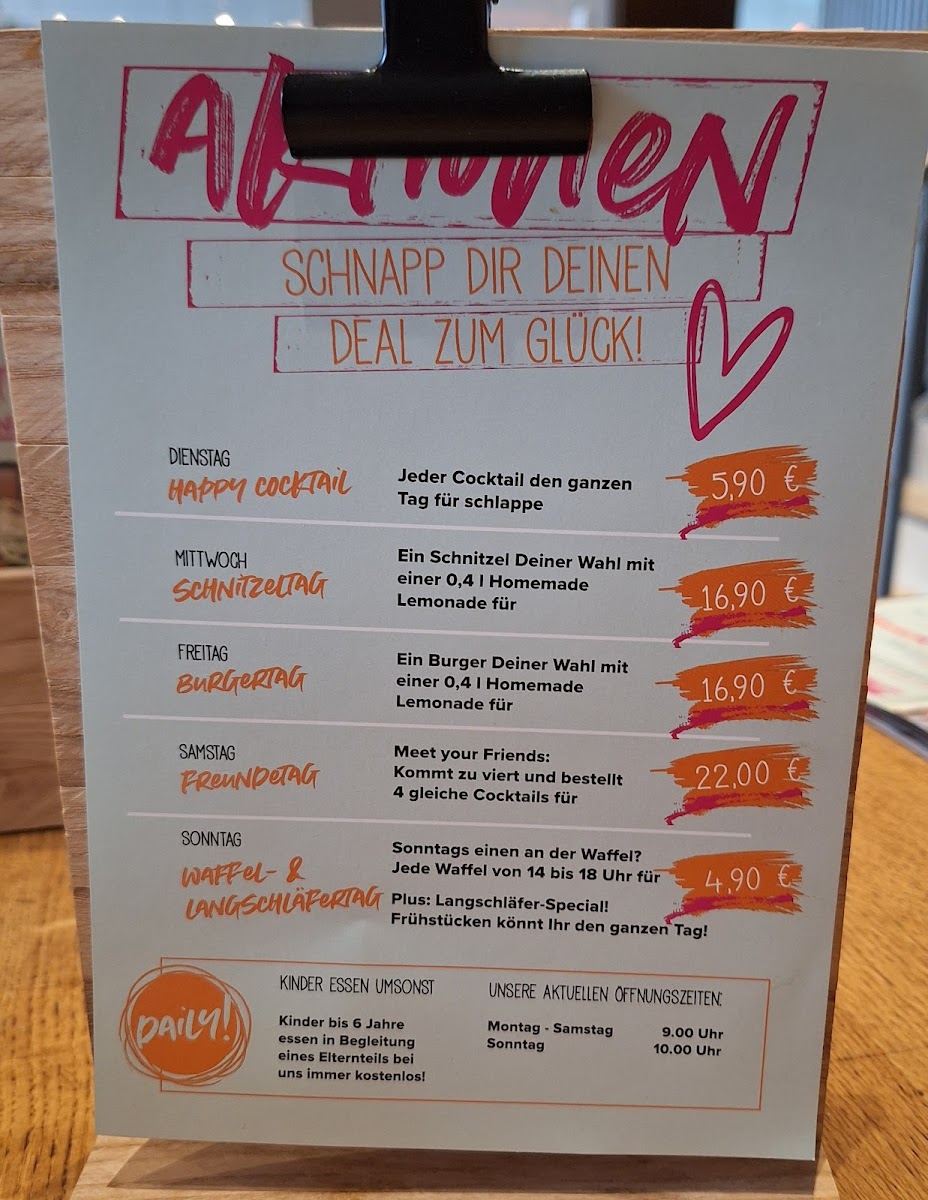 AKTIONEN
SCHNAPP DIR DEINEN
DEAL ZUM GLÜCK!
DIENSTAG
HAPPY COCKTAIL
Jeder Cocktail den ganzen
Tag für schlappe
5,90 €
MITTWOCH
SCHNITZELTAG
Ein Schnitzel Deiner Wahl mit
einer 0,4 l Homemade
Lemonade für
16,90 €
FREITAG
BURGERTAG
Ein Burger Deiner Wahl mit
einer 0,4 l Homemade
Lemonade für
16,90 €
SAMSTAG
FREUNDETAG
Meet your Friends:
Kommt zu viert und bestellt
4 gleiche Cocktails für
22,00 €
SONNTAG
WAFFEL- &
LANGSCHLÄFERTAG
Sonntags einen an der Waffel?
Jede Waffel von 14 bis 18 Uhr für
4,90 €
Plus: Langschläfer-Special!
Frühstücken könnt Ihr den ganzen Tag!
DAILY!
KINDER ESSEN UMSONST
Kinder bis 6 Jahre
essen in Begleitung
eines Elternteils bei
uns immer kostenlos!
UNSERE AKTUELLEN ÖFFNUNGSZEITEN:
Montag - Samstag 9.00 Uhr
Sonntag 10.00 Uhr